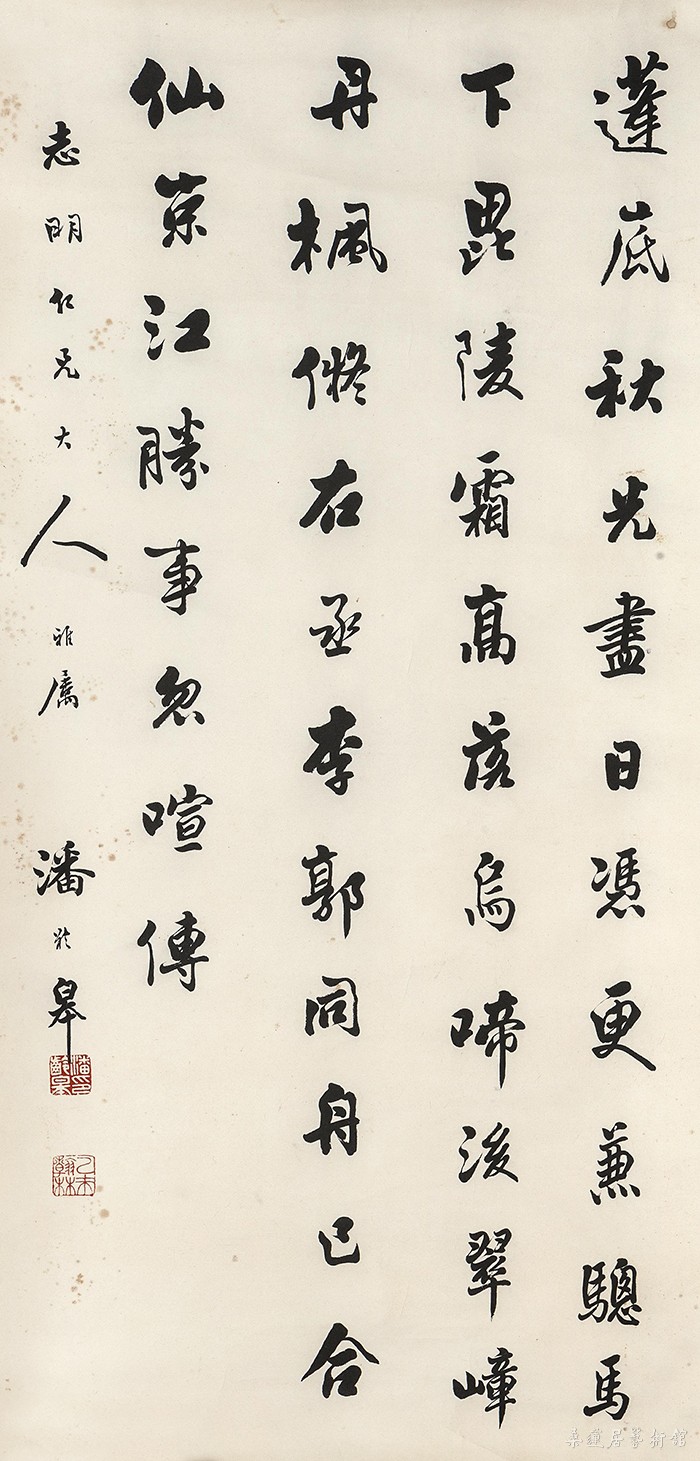 蓬底秋光盡日憑更兼驄馬
下毘陵霜高落烏啼後翠嶂
丹楓儗右丞李郭同舟已合
仙京江勝事忽喧傳
志明仁兄大人雅屬
潘齡皋
潘印齡皋
乙未翰林